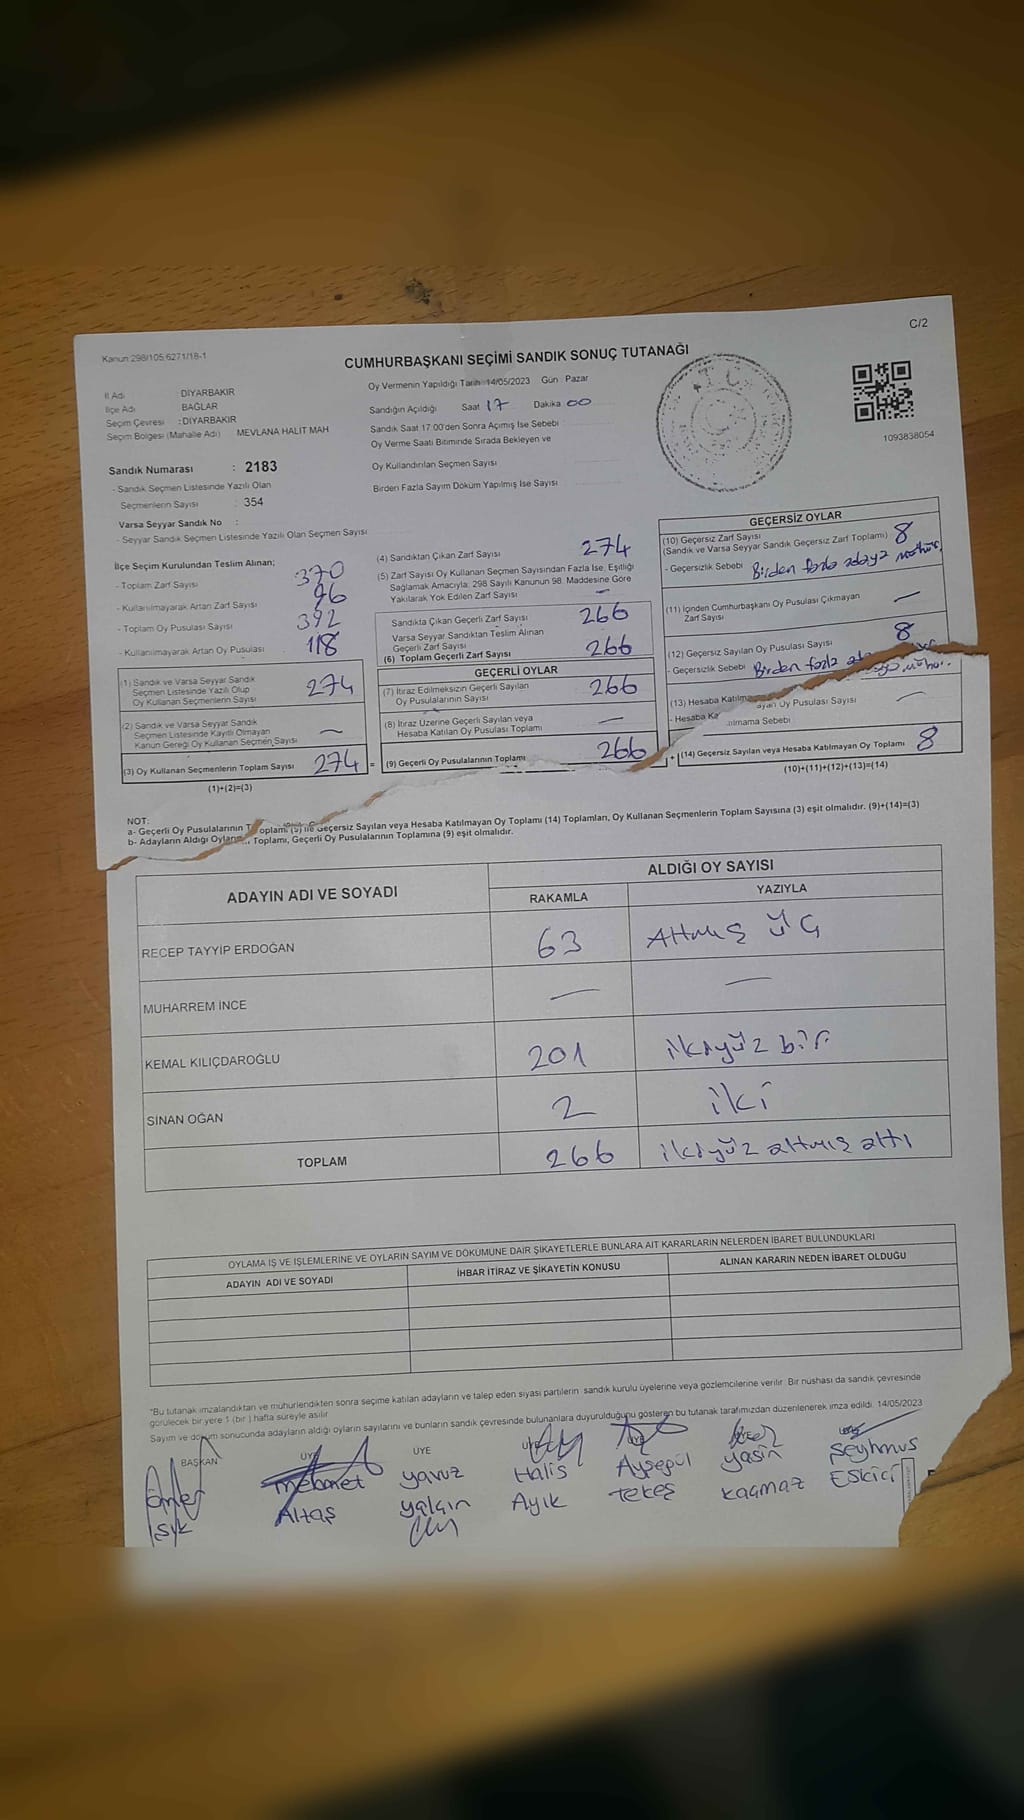 C/2
Kanun 298/105 6271/18-1
CUMHURBAŞKANI SEÇİMİ SANDIK SONUÇ TUTANAĞI
İl Adı : DİYARBAKIR
İlçe Adı : BAĞLAR
Seçim Çevresi : DİYARBAKIR
Seçim Bölgesi (Mahalle Adı) MEVLANA HALİT MAH
Sandık Numarası : 2183
- Sandık Seçmen Listesinde Yazılı Olan
Seçmenlerin Sayısı : 354
Varsa Seyyar Sandık No :
- Seyyar Sandık Seçmen Listesinde Yazılı Olan Seçmen Sayısı
Oy Vermenin Yapıldığı Tarih 14/05/2023 Gün Pazar
Sandığın Açıldığı Saat 17 Dakika 00
Sandık Saat 17:00'den Sonra Açımış İse Sebebi
Oy Verme Saati Bitiminde Sırada Bekleyen ve
Oy Kullandırılan Seçmen Sayısı
Birden Fazla Sayım Döküm Yapılmış İse Sayısı
T.C.
1093838054
İlçe Seçim Kurulundan Teslim Alınan;
- Toplam Zarf Sayısı : 370
- Kullanılmayarak Artan Zarf Sayısı 96
- Toplam Oy Pusulası Sayısı 392
- Kullanılmayarak Artan Oy Pusulası 118
(1) Sandık ve Varsa Seyyar Sandık
Seçmen Listesinde Yazılı Olup
Oy Kullanan Seçmenlerin Sayısı 274
(2) Sandık ve Varsa Seyyar Sandık
Seçmen Listesinde Kayıtlı Olmayan
Kanun Gereği Oy Kullanan Seçmen Sayısı —
(3) Oy Kullanan Seçmenlerin Toplam Sayısı 274 =
(1)+(2)=(3)
(4) Sandıktan Çıkan Zarf Sayısı 274
(5) Zarf Sayısı Oy Kullanan Seçmen Sayısından Fazla İse, Eşitliği
Sağlamak Amacıyla, 298 Sayılı Kanunun 98. Maddesine Göre
Yakılarak Yok Edilen Zarf Sayısı —
Sandıkta Çıkan Geçerli Zarf Sayısı 266
Varsa Seyyar Sandıktan Teslim Alınan
Geçerli Zarf Sayısı
(6) Toplam Geçerli Zarf Sayısı 266
GEÇERLİ OYLAR
(7) İtiraz Edilmeksizin Geçerli Sayılan
Oy Pusulalarının Sayısı 266
(8) İtiraz Üzerine Geçerli Sayılan veya
Hesaba Katılan Oy Pusulası Toplamı —
(9) Geçerli Oy Pusulalarının Toplamı 266
GEÇERSİZ OYLAR
(10) Geçersiz Zarf Sayısı
(Sandık ve Varsa Seyyar Sandık Geçersiz Zarf Toplamı) 8
- Geçersizlik Sebebi Birden fazla adaya mühür.
(11) İçinden Cumhurbaşkanı Oy Pusulası Çıkmayan
Zarf Sayısı —
(12) Geçersiz Sayılan Oy Pusulası Sayısı 8
- Geçersizlik Sebebi Birden fazla
(13) Hesaba Katılmayan Oy Pusulası Sayısı —
- Hesaba Ka ılmama Sebebi
+ (14) Geçersiz Sayılan veya Hesaba Katılmayan Oy Toplamı 8
(10)+(11)+(12)+(13)=(14)
NOT:
a- Geçerli Oy Pusulalarının Toplamı (9) ile Geçersiz Sayılan veya Hesaba Katılmayan Oy Toplamı (14) Toplamları, Oy Kullanan Seçmenlerin Toplam Sayısına (3) eşit olmalıdır. (9)+(14)=(3)
b- Adayların Aldığı Oyların Toplamı, Geçerli Oy Pusulalarının Toplamına (9) eşit olmalıdır.
ADAYIN ADI VE SOYADI
ALDIĞI OY SAYISI
RAKAMLA YAZIYLA
RECEP TAYYİP ERDOĞAN 63 Altmış üç
MUHARREM İNCE — —
KEMAL KILIÇDAROĞLU 201 ikiyüz bir
SİNAN OĞAN 2 iki
TOPLAM 266 ikiyüz altmış altı
OYLAMA İŞ VE İŞLEMLERİNE VE OYLARIN SAYIM VE DÖKÜMÜNE DAİR ŞİKAYETLERLE BUNLARA AİT KARARLARIN NELERDEN İBARET BULUNDUKLARI
ADAYIN ADI VE SOYADI İHBAR İTİRAZ VE ŞİKAYETİN KONUSU ALINAN KARARIN NEDEN İBARET OLDUĞU
*Bu tutanak imzalandıktan ve mühürlendikten sonra seçime katılan adayların ve talep eden siyasi partilerin sandık kurulu üyelerine veya gözlemcilerine verilir. Bir nüshası da sandık çevresinde
görülecek bir yere 1 (bir ) hafta süreyle asılır.
Sayım ve döküm sonucunda adayların aldığı oyların sayılarını ve bunların sandık çevresinde bulunanlara duyurulduğunu gösteren bu tutanak tarafımızdan düzenlenerek imza edildi. 14/05/2023
BAŞKAN ÜYE ÜYE ÜYE ÜYE ÜYE
Ömer Mehmet Yavuz Halis Ayşegül Yasin Şeyhmus
Işık Altaş Yalçın Ayık Tekeş Kaçmaz Eskici